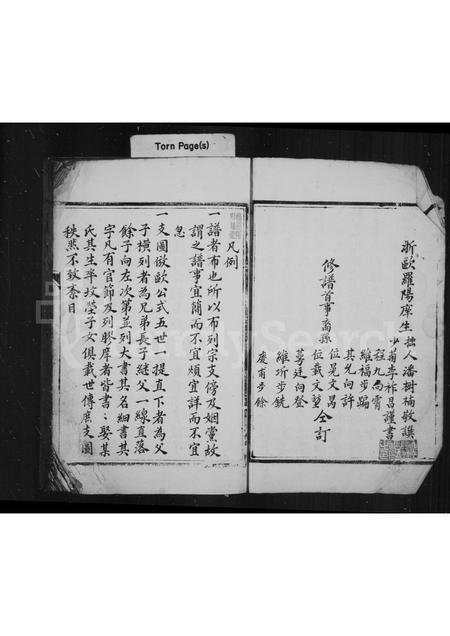 Torn Page(s)
浙歐羅陽庠生拙人潘樹楠敬譔
少蘭年祚昌謹書
修譜首事裔孫
程九向霄
維福步踰
其允向許
位晃文昺
位載文塹
蓴廷向登
維圻步銑
慶甫步餘
仝訂
凡例
一譜者布也所以布列宗支傍及姻黨故
謂之譜事宜簡而不宜煩宜詳而不宜
忽
一支圖倣歐公式五世一提直下者為父
子橫列者為兄弟長子繼父一線直落
餘子向左次第並列大書其名細書其
字凡有官節及列膠庠者皆書某娶某
氏其生卒坟塋子女俱載世傳庶支圖
秩然不致紊目
FamilySearch